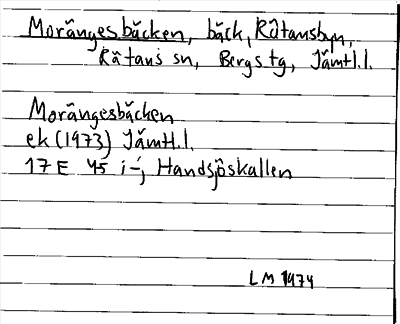 Morängesbäcken, bäck, Råtansbyn,
Råtans sn, Bergs tg, Jämtl.l.
Morängesbäcken
ek (1973) Jämtl.l.
17 E 45 i-j Handsjöskallen
LM 1974